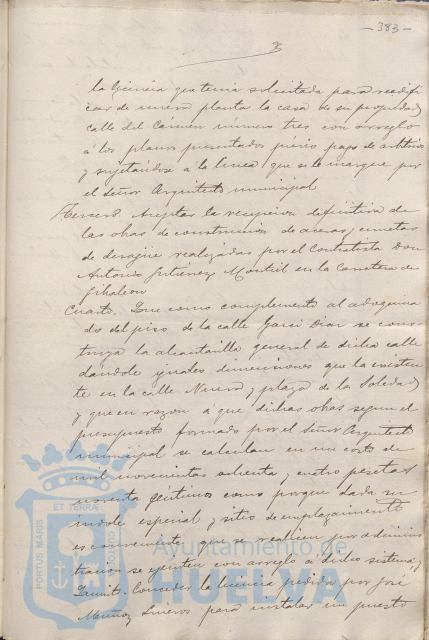 - 383 -
la licencia que tenia solicitada para reedifi
car de nueva planta la casa de su propiedad
calle del Cármen número tres con arreglo
á los planos presentados prévio pago de arbitrios
y sujetandose á la linea que se le marque por
el Señor Arquitecto municipal
Tercero. Aceptar la recepcion definitiva de
las obras de construccion de aceras y cunetas
de desagüe realizadas por el Contratista Don
Antonio Gutierrez Montiel en la Carretera de
Gibraleon
Cuarto. Que como complemento al adoquina
do del piso de la calle Garci Diaz se cons
truya la alcantarilla general de dicha calle
dándole yguales dimensiones que la existen
te en la calle Nueva y plaza de la Soledad
y que en razon á que dichas obras segun el
presupuesto formado por el Señor Arquitecto
municipal se calculan en un costo de
mil novecientas ochenta y cuatro pesetas
noventa céntimos como porque dada su
índole especial y sitio de emplazamiento
es conveniente que se realicen por adminis
tracion se ejecuten con arreglo á dicho sistema
Quinto. Conceder la licencia pedida por José
Muñoz para instalar un puesto
PORTUS MARIS
ET TERRAE
CUSTODIO
Ayuntamiento de
HUELVA